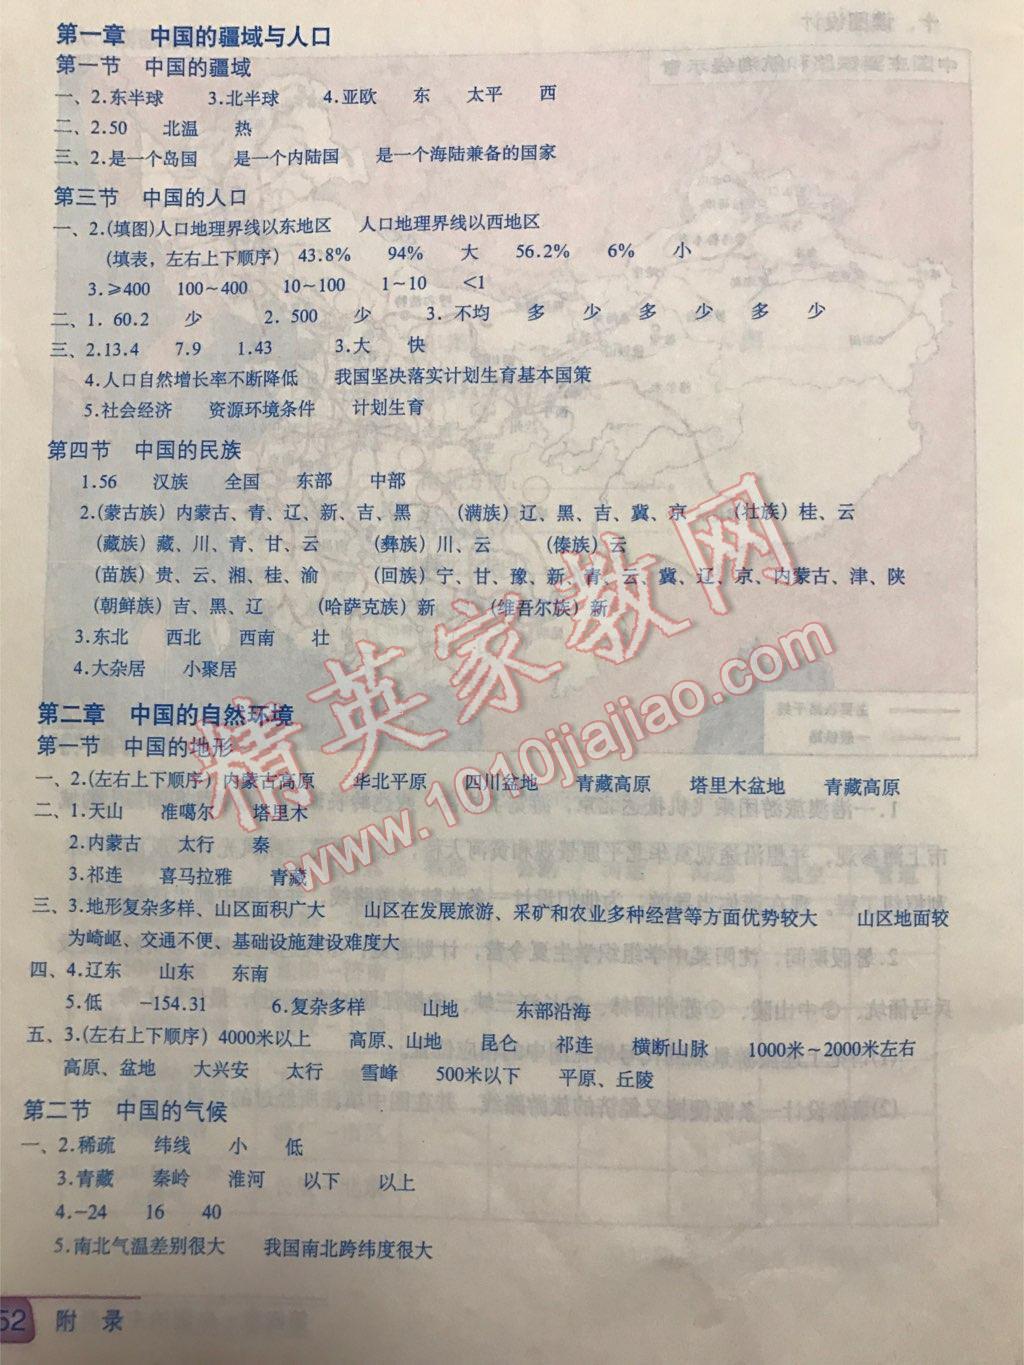 第一章 中国的疆域与人口
第一节 中国的疆域
一、2.东半球 3.北半球 4.亚欧 东 太平 西
二、2.50 北温 热
三、2.是一个岛国 是一个内陆国 是一个海陆兼备的国家
第三节 中国的人口
一、2.(填图)人口地理界线以东地区 人口地理界线以西地区
(填表，左右上下顺序) 43.8% 94% 大 56.2% 6% 小
3.≥400 100~400 10~100 1~10 <1
二、1. 60.2 少 2. 500 少 3. 不均 多 少 多 少 多 少
三、2.13.4 7.9 1.43 3.大 快
4.人口自然增长率不断降低 我国坚决落实计划生育基本国策
5.社会经济 资源环境条件 计划生育
第四节 中国的民族
1.56 汉族 全国 东部 中部
2.(蒙古族) 内蒙古、青、辽、新、吉、黑 (满族) 辽、黑、吉、冀、京 (壮族) 桂、云
(藏族) 藏、川、青、甘、云 (彝族) 川、云 (傣族) 云
(苗族) 贵、云、湘、桂、渝 (回族) 宁、甘、豫、新、青、云、冀、辽、京、内蒙古、津、陕
(朝鲜族) 吉、黑、辽 (哈萨克族) 新 (维吾尔族) 新
3.东北 西北 西南 壮
4.大杂居 小聚居
第二章 中国的自然环境
第一节 中国的地形
一、2.(左右上下顺序) 内蒙古高原 华北平原 四川盆地 青藏高原 塔里木盆地 青藏高原
二、1.天山 准噶尔 塔里木
2.内蒙古 太行 秦
3.祁连 喜马拉雅 青藏
三、3.地形复杂多样、山区面积广大 山区在发展旅游、采矿和农业多种经营等方面优势较大 山区地面较
为崎岖、交通不便、基础设施建设难度大
四、4.辽东 山东 东南
5.低 -154.31 6.复杂多样 山地 东部沿海
五、3.(左右上下顺序) 4000米以上 高原、山地 昆仑 祁连 横断山脉 1000米~2000米左右
高原、盆地 大兴安 太行 雪峰 500米以下 平原、丘陵
第二节 中国的气候
一、2.稀疏 纬线 小 低
3.青藏 秦岭 淮河 以下 以上
4.-24 16 40
5.南北气温差别很大 我国南北跨纬度很大
52 附 录
精英家教网
www.1010jiajiao.com